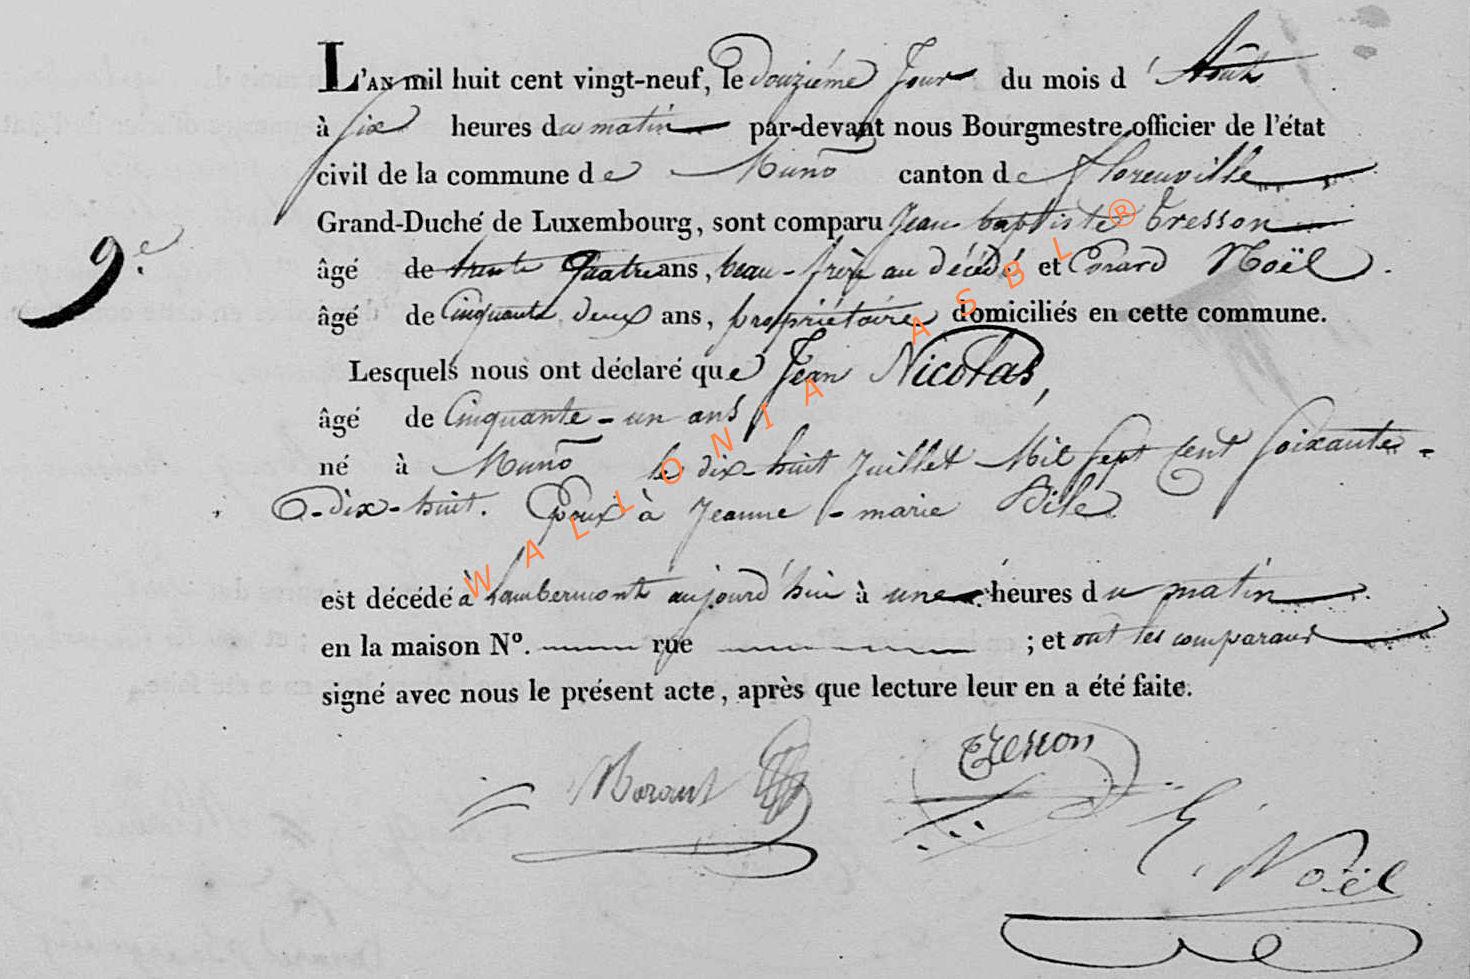 L'AN mil huit cent vingt-neuf, le douziéme Jour du mois d'Août
à six heures du matin par-devant nous Bourgmestre, officier de l'état
civil de la commune de Muno canton de florenville
Grand-Duché de Luxembourg, sont comparu Jean baptiste Tresson
9.e
âgé de trente Quatre ans, beau-frère au décédé et Noël
âgé de Cinquante deux ans, propriétaire domiciliés en cette commune.
Lesquels nous ont déclaré que Jean Nicolas,
âgé de Cinquante-un ans
né à Muno le dix-huit Juillet Mil Sept Cent Soixante-
-dix-huit. Epoux à Jeanne-marie
est décédé à Lambermont aujourd'hui à une heures du matin
en la maison Nº. rue ; et ont les comparans
signé avec nous le présent acte, après que lecture leur en a été faite.
Tresson
Noël
WALLONIA ASBL ®